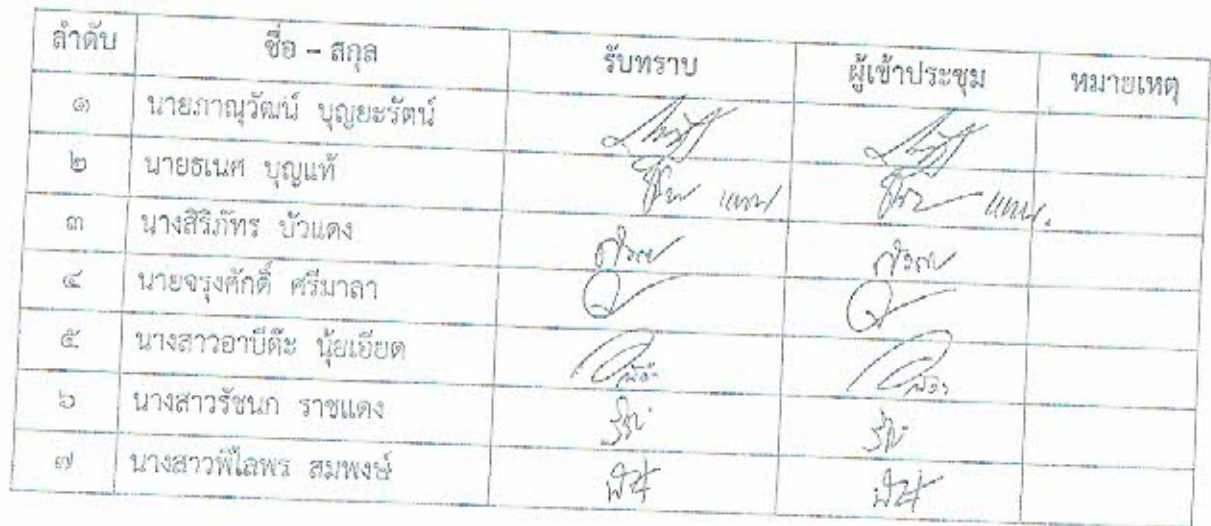 ลำดับ ชื่อ – สกุล รับทราบ ผู้เข้าประชุม หมายเหตุ
๑ นายภาณุวัฒน์ บุญยะรัตน์
๒ นายธเนศ บุญแท้ แทน แทน.
๓ นางสิริภัทร บัวแดง
๔ นายจรุงศักดิ์ ศรีมาลา
๕ นางสาวอาบีต๊ะ นุ้ยเอียด
๖ นางสาวรัชนก ราชแดง
๗ นางสาวพิไลพร สมพงษ์